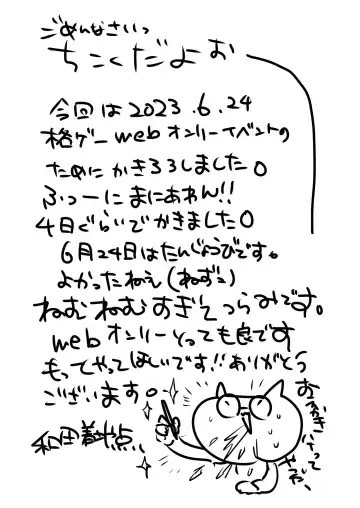 ごめんなさいっ
ちこくだよお
今回は2023.6.24
格ゲーwebオンリーイベントの
ために かきろろしました。
ふつーにまにあわん!!
4日ぐらいでかきました。
6月24日はたんじょうびです。
よかったねえ(ねずこ)
ねむねむすぎてつらみです。
webオンリーとっても良です
もってやってほしいです!!ありがとう
ございます。